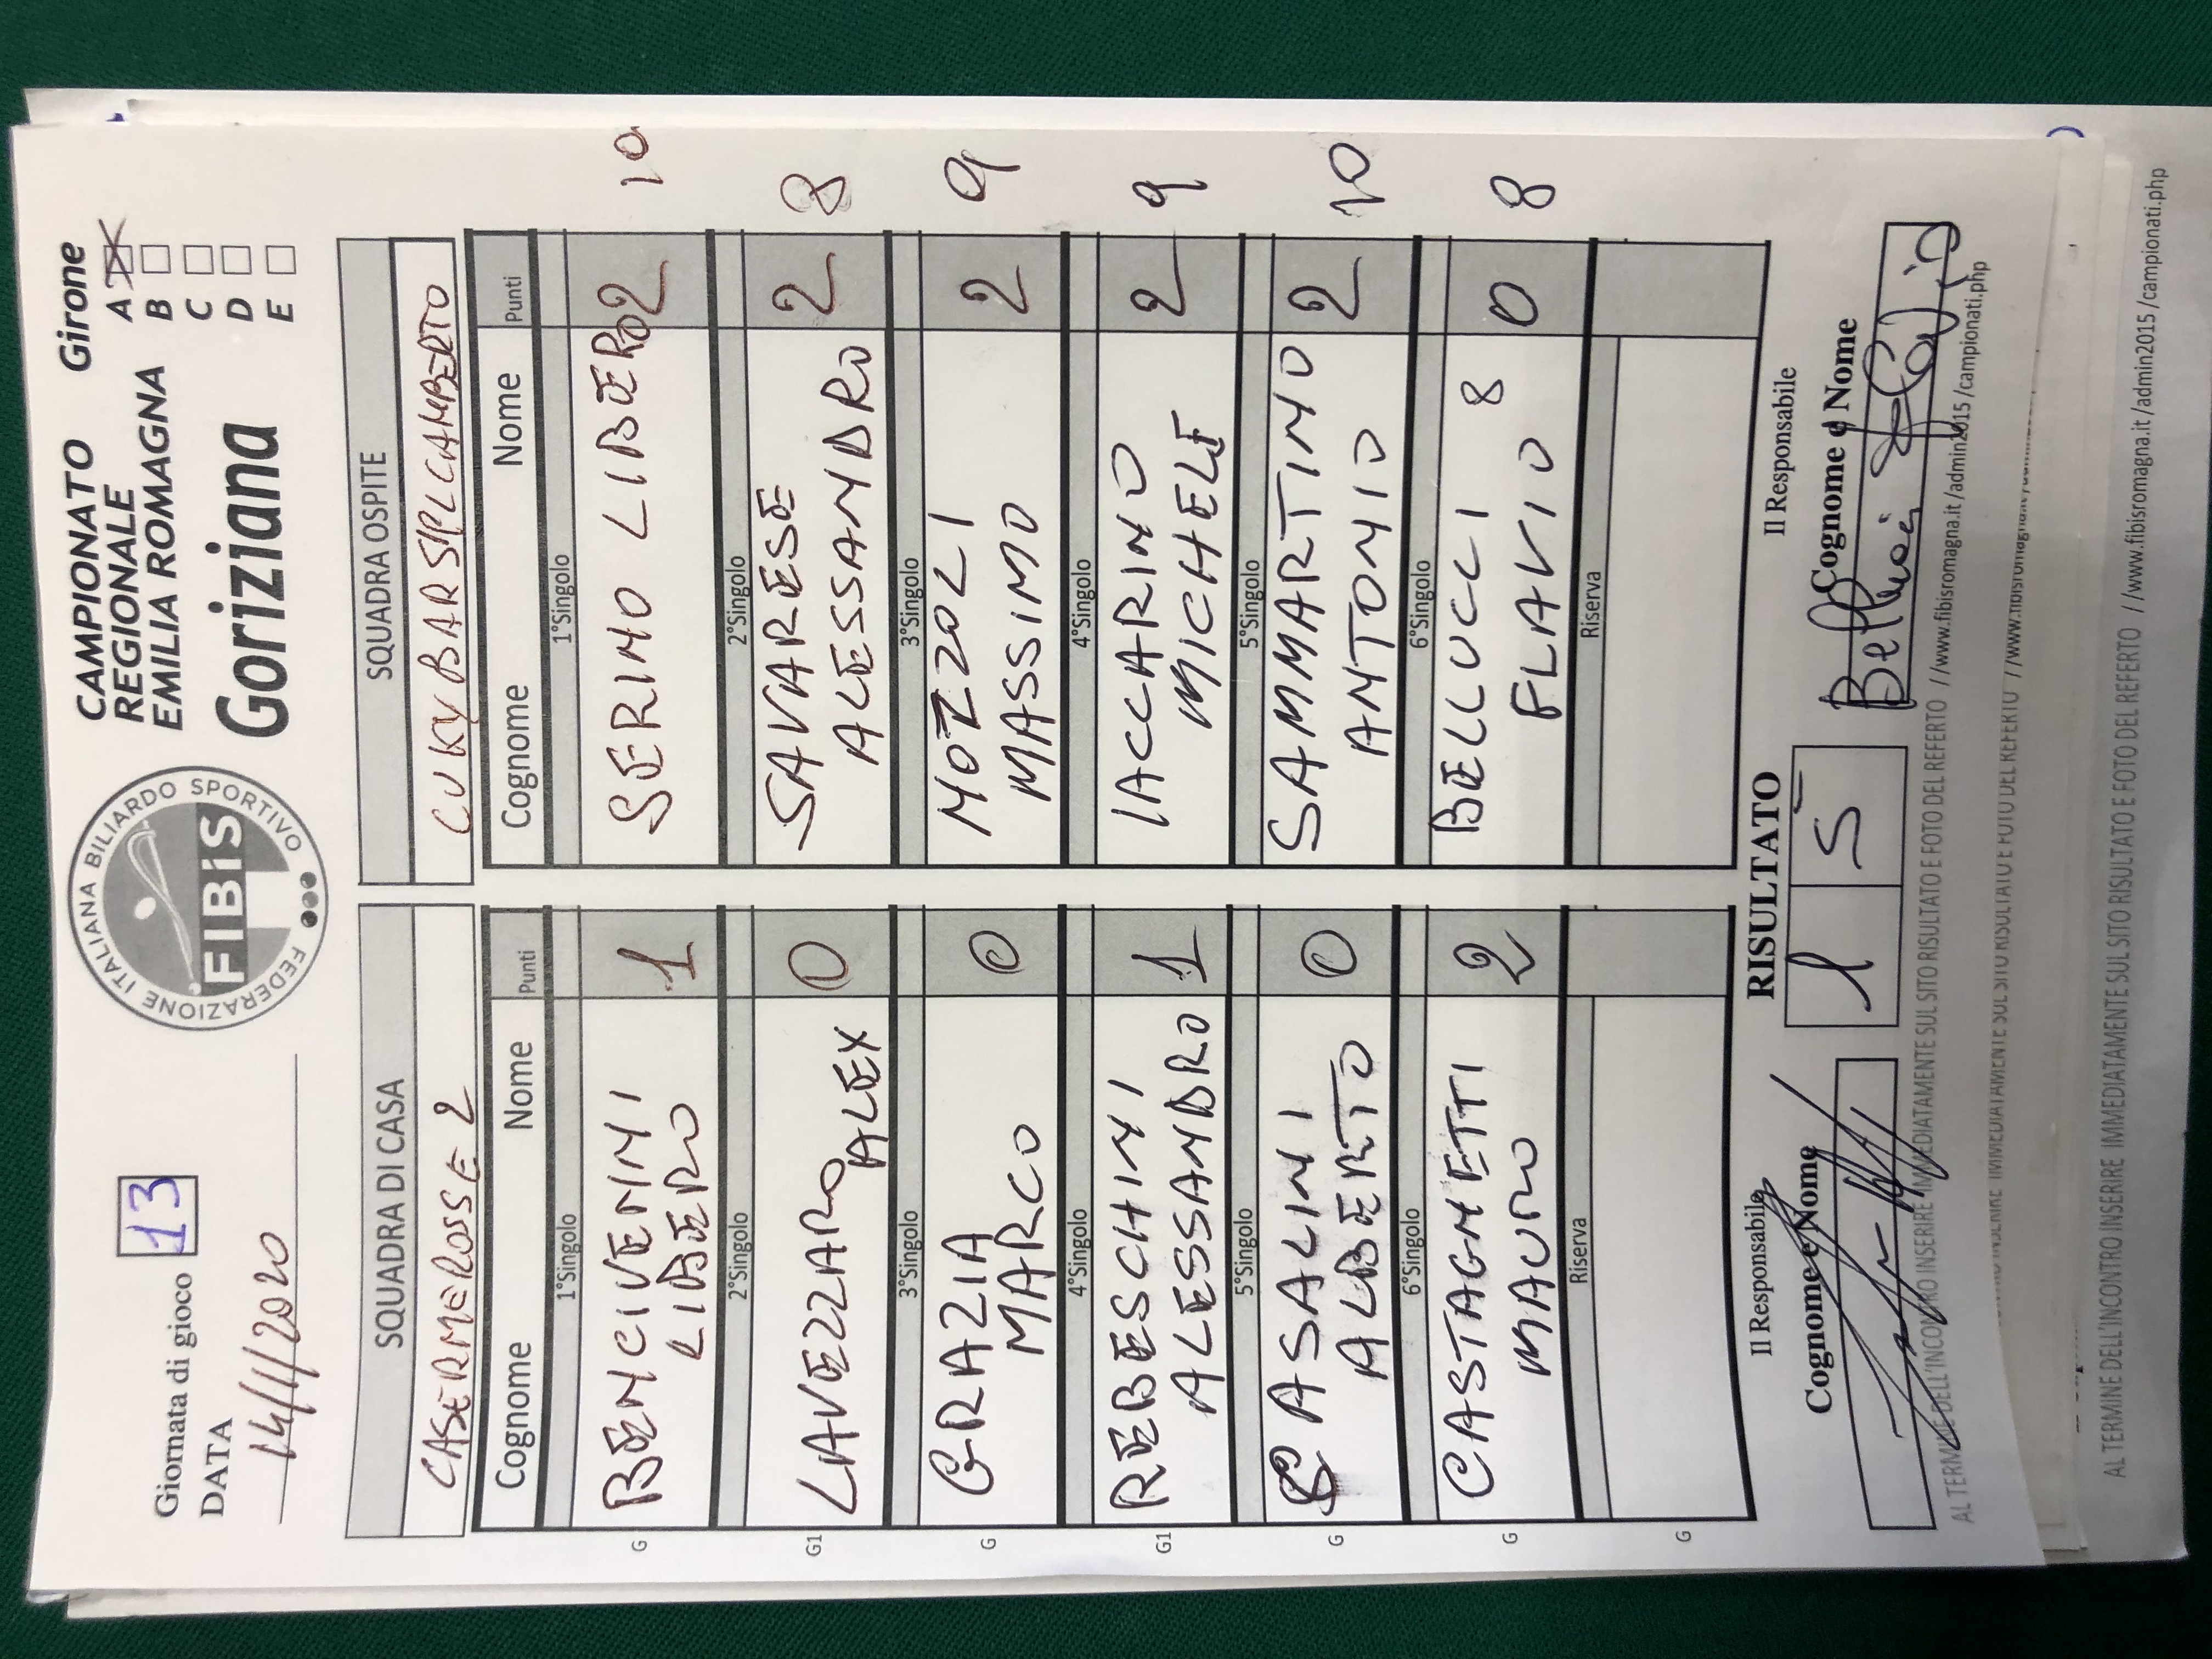 Giornata di gioco 13
DATA
14/1/2020
FEDERAZIONE ITALIANA BILIARDO SPORTIVO
FIBIS
CAMPIONATO
REGIONALE
EMILIA ROMAGNA
Goriziana
Girone
A X
B
C
D
E
SQUADRA DI CASA
CASERMEROSSE 2
Cognome Nome Punti
1°Singolo
G BENCIVENNI LIBERO 1
2°Singolo
G1 LAVEZZARO ALEX 0
3°Singolo
G GRAZIA MARCO 0
4°Singolo
G1 REBESCHINI ALESSANDRO 1
5°Singolo
G CASALINI ALBERTO 0
6°Singolo
G CASTAGNETTI MAURO 2
Riserva
G
SQUADRA OSPITE
CUKY BAR SPILCAMBERTO
Cognome Nome Punti
1°Singolo
SERINO LIBERO 2 10
2°Singolo
SAVARESE ALESSANDRO 2 8
3°Singolo
MOZZOLI MASSIMO 2 9
4°Singolo
IACCARINO MICHELE 2 9
5°Singolo
SAMMARTINO ANTONIO 2 10
6°Singolo
BELLUCCI 8
FLAVIO 0 8
Riserva
Il Responsabile
Cognome e Nome
RISULTATO
1 5
Il Responsabile
Cognome e Nome
Bellucci Flavio
AL TERMINE DELL'INCONTRO INSERIRE IMMEDIATAMENTE SUL SITO RISULTATO E FOTO DEL REFERTO //www.fibisromagna.it/admin2015/campionati.php
AL TERMINE DELL'INCONTRO INSERIRE IMMEDIATAMENTE SUL SITO RISULTATO E FOTO DEL REFERTO //www.fibisromagna.it/admin2015/campionati.php